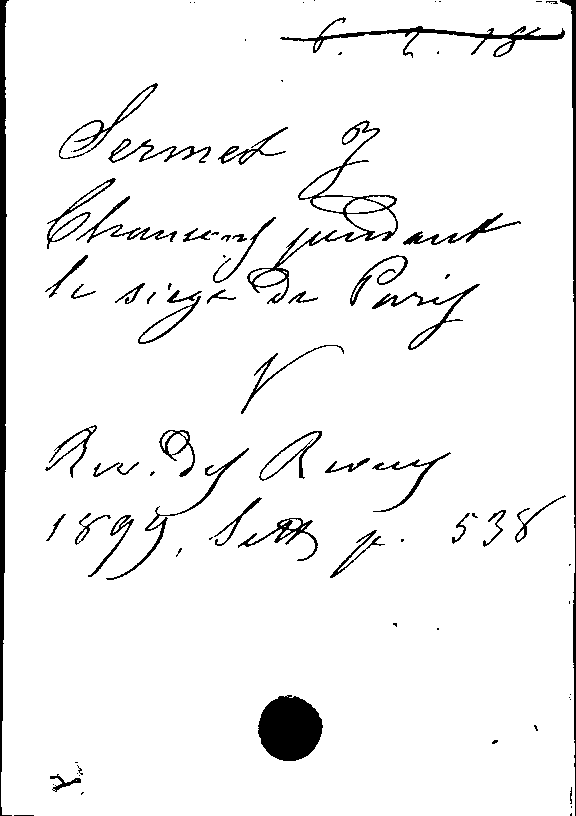 6. 2. 18
Sermet J
Chansons pendant
le siege de Paris
V
Rev. des Revues
1899, Sett p. 538